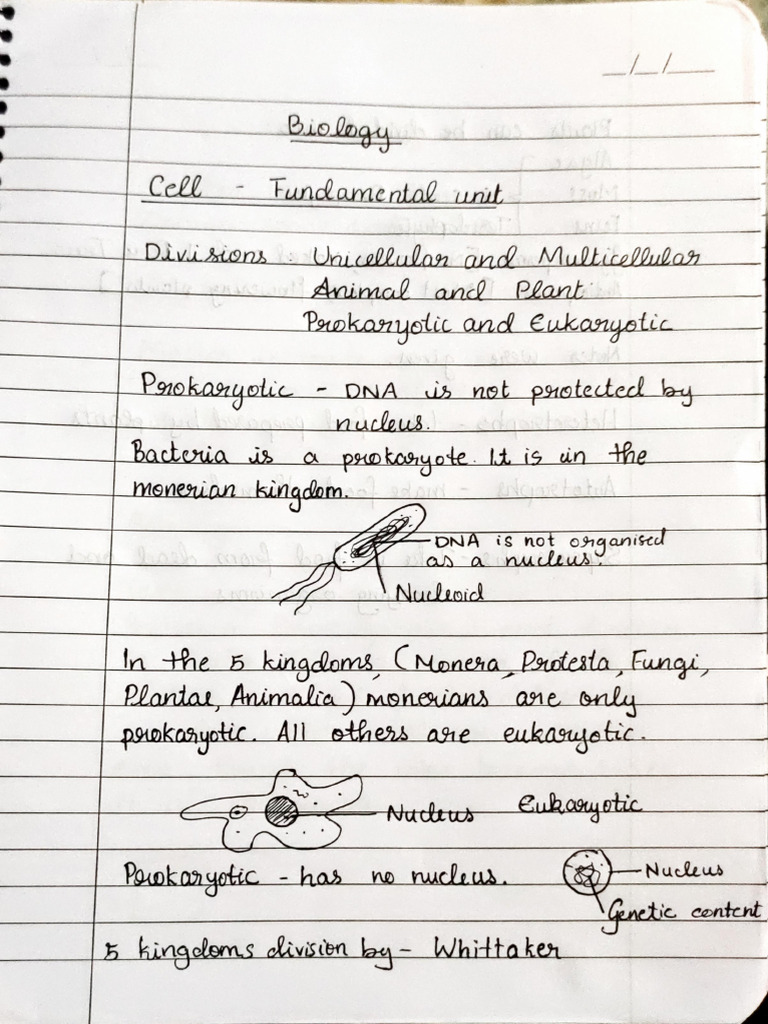 _/_/__
Biology
Cell - Fundamental unit
Divisions : Unicellular and Multicellular
Animal and Plant
Prokaryotic and Eukaryotic
Prokaryotic - DNA is not protected by
nucleus.
Bacteria is a prokaryote. It is in the
monerian kingdom.
DNA is not organised
as a nucleus.
Nucleoid
In the 5 kingdoms, (Monera, Protesta, Fungi,
Plantae, Animalia) monerians are only
prokaryotic. All others are eukaryotic.
Nucleus Eukaryotic
Prokaryotic - has no nucleus.
Nucleus
Genetic content
5 kingdoms division by - Whittaker